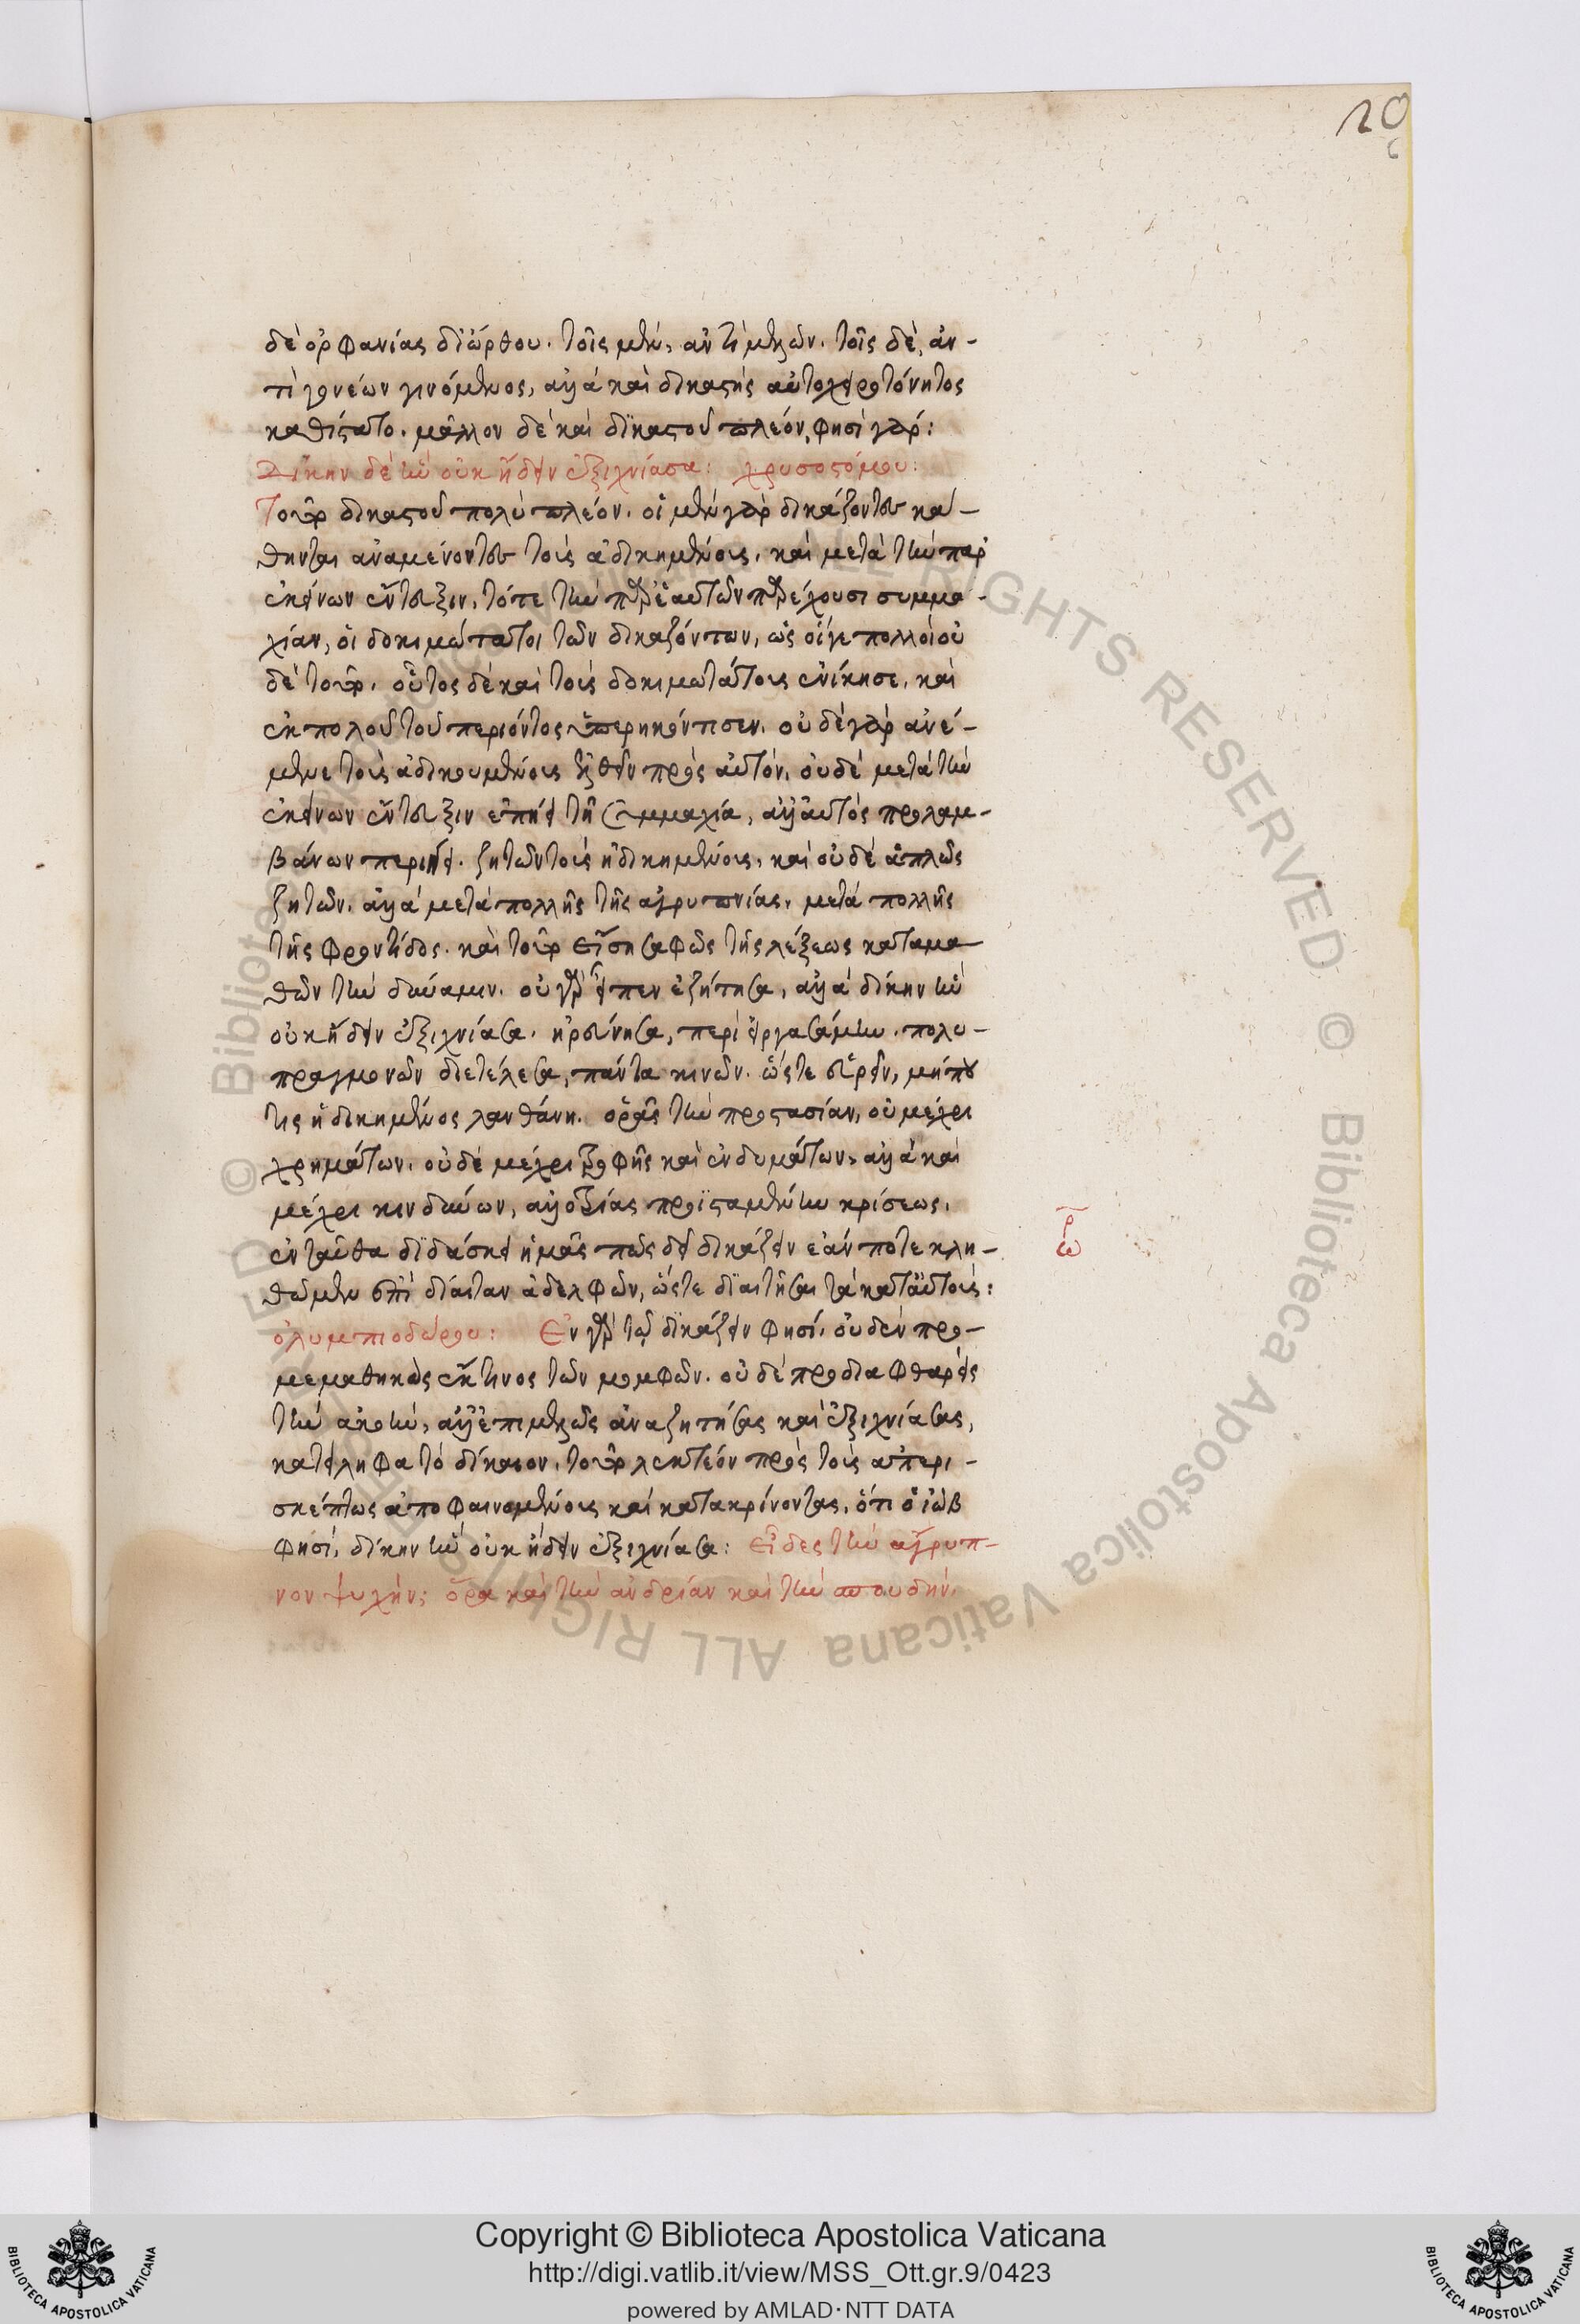 20
δὲ ὀρφανίας διώρθου. τοῖς μὲν, ἀντὶ μελῶν. τοῖς δὲ, ἀν-
τὶ γονέων γινόμενος, ἀλλὰ καὶ δικαστὴς αὐτοχειροτόνητος
καθίστατο. μᾶλλον δὲ καὶ δικαστοῦ πλεόν, φησὶ γάρ:
Δίκην δὲ ἣν οὐκ ᾔδειν ἐξιχνίασα: χρυσοστόμου:
Τοῦτο δικαστοῦ πολὺ πλέον. οἱ μὲν γὰρ δικάζοντες κά-
θηνται ἀναμένοντες τοὺς ἀδικημένους, καὶ μετὰ τὴν παρ'
ἐκείνων ἔντευξιν, τότε τὴν παρ' ἑαυτῶν παρέχουσι συμμα-
χίαν, οἱ δοκιμώτατοι τῶν δικαζόντων, ὡς οἵγε πολλοὶ οὐ
δὲ τοῦτο. οὗτος δὲ καὶ τοὺς δοκιμωτάτους ἐνίκησε, καὶ
ἐκ πολλοῦ τοῦ περιόντος ὑπερηκόντισεν. οὐδὲ γὰρ ἀνέ-
μενε τοὺς ἀδικουμένους ἐλθεῖν πρὸς αὐτόν, οὐδὲ μετὰ τὴν
ἐκείνων ἔντευξιν ἐπῄει τῇ συμμαχία, ἀλλ' αὐτὸς προλαμ-
βάνων περιῄει. ζητῶν τοὺς ἠδικημένους, καὶ οὐδὲ ἁπλῶς
ζητῶν. ἀλλὰ μετὰ πολλῆς τῆς ἀγρυπνίας, μετὰ πολλῆς
τῆς φροντίδος. καὶ τοῦτο εἴση σαφῶς τῆς λέξεως καταμα-
θὼν τὴν δύναμιν. οὐ γὰρ εἶπεν ἐζήτησα, ἀλλὰ δίκην ἣν
οὐκ ᾔδειν ἐξιχνίασα. ἠρεύνησα, περιειργασάμην. πολυ-
πραγμονῶν διετέλεσα, πάντα κινῶν. ὥστε εὑρεῖν, μήπου
τις ἠδικημένος λανθάνη. ὁρᾷς τὴν προστασίαν, οὐ μέχρι
χρημάτων. οὐδὲ μέχρι τροφῆς καὶ ἐνδυμάτων, ἀλλὰ καὶ
μέχρι κινδύνων, ἀλλοτρίας προϊσταμένην κρίσεως.
ἐνταῦθα διδάσκει ἡμᾶς πῶς δεῖ δικάζειν ἐάν ποτε κλη-
θῶμεν ἐπὶ δίαιταν ἀδελφῶν, ὥστε διαιτῆσαι τὰ κατ' αὐτοὺς:
ὀλυμπιοδώρου: Ἐν γὰρ τῷ δικάζειν φησί, οὐδὲν προ-
μεμαθηκὼς ἔκ τινος τῶν μομφῶν. οὐδὲ προδιαφθαρεὶς
τὴν ἀκοὴν, ἀλλ' ἐπιμελῶς ἀναζητήσας καὶ ἐξιχνίασας,
κατείληφα τὸ δίκαιον. τοῦτο λεκτέον πρὸς τοὺς ἀπερι-
σκέπτως ἀποφαινομένους καὶ κατακρίνοντας, ὅτι ὁ ἰὼβ
φησί, δίκην ἣν οὐκ ᾔδειν ἐξιχνίασα: Εἶδες τὴν ἄγρυπ-
νον ψυχὴν; ὅρα καὶ τὴν ἀνδρίαν καὶ τὴν σπουδήν.
Copyright © Biblioteca Apostolica Vaticana
http://digi.vatlib.it/view/MSS_Ott.gr.9/0423
powered by AMLAD · NTT DATA